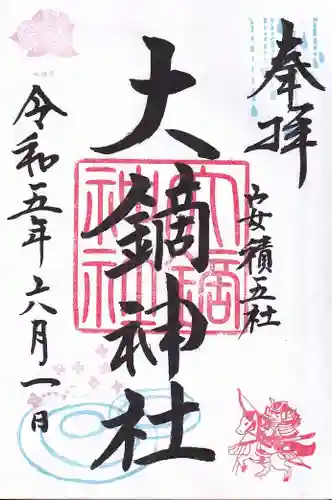 奉拝
安積五社
大鏑神社
令和五年六月一日